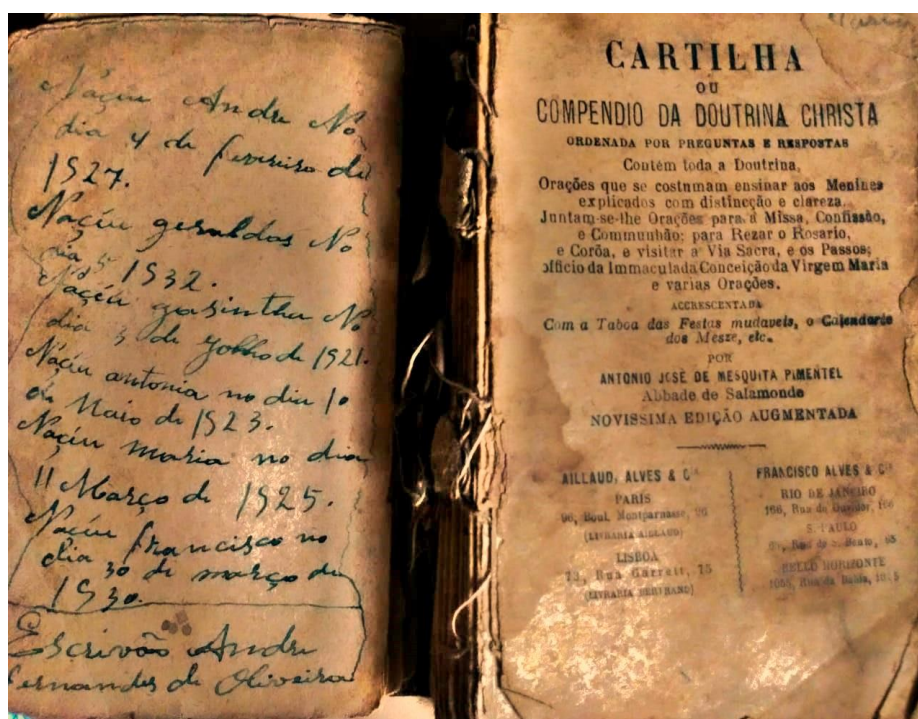 Naçeu Andre No
dia 4 de fevereiro de
1927.
Naçeu geraldos No
dia 5 1932.
Naçeu gasintha No
dia 3 de Jolho de 1921.
Naçeu antonia no dia 10
de Maio de 1923.
Naçeu maria no dia
11 Março de 1925.
Naçeu francisco no
dia 30 de março de
1930.
Escrivão Andre
Fernandes de Oliveira
CARTILHA
OU
COMPENDIO DA DOUTRINA CHRISTA
ORDENADA POR PREGUNTAS E RESPOSTAS
Contém toda a Doutrina,
Orações que se costumam ensinar aos Meninos
explicados com distincção e clareza.
Juntam-se-lhe Orações para a Missa, Confissão,
e Communhão; para Rezar o Rosario,
e Corôa, e visitar a Via Sacra, e os Passos;
officio da Immaculada Conceição da Virgem Maria
e varias Orações.
ACCRESCENTADA
Com a Taboa das Festas mudaveis, o Calendario
dos Mezes, etc.
POR
ANTONIO JOSÉ DE MESQUITA PIMENTEL
Abbade de Salamonde
NOVISSIMA EDIÇÃO AUGMENTADA
AILLAUD, ALVES & Cª
PARIS
96, Boul. Montparnasse, 96
(LIVRARIA AILLAUD)
LISBOA
73, Rua Garrett, 75
(LIVRARIA BERTRAND)
FRANCISCO ALVES & Cª
RIO DE JANEIRO
166, Rua do Ouvidor, 166
S. PAULO
Rua de S. Bento, 65
BELLO HORIZONTE
1055, Rua da Bahia, 1055